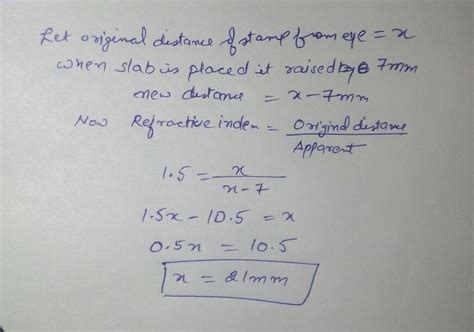 Let original distance of stamp from eye = x
when slab is placed it raised by 7mm
new distance = x - 7mm
Now Refractive index = Original distance
Apparent
1.5 = x
x - 7
1.5x - 10.5 = x
0.5x = 10.5
x = 21mm